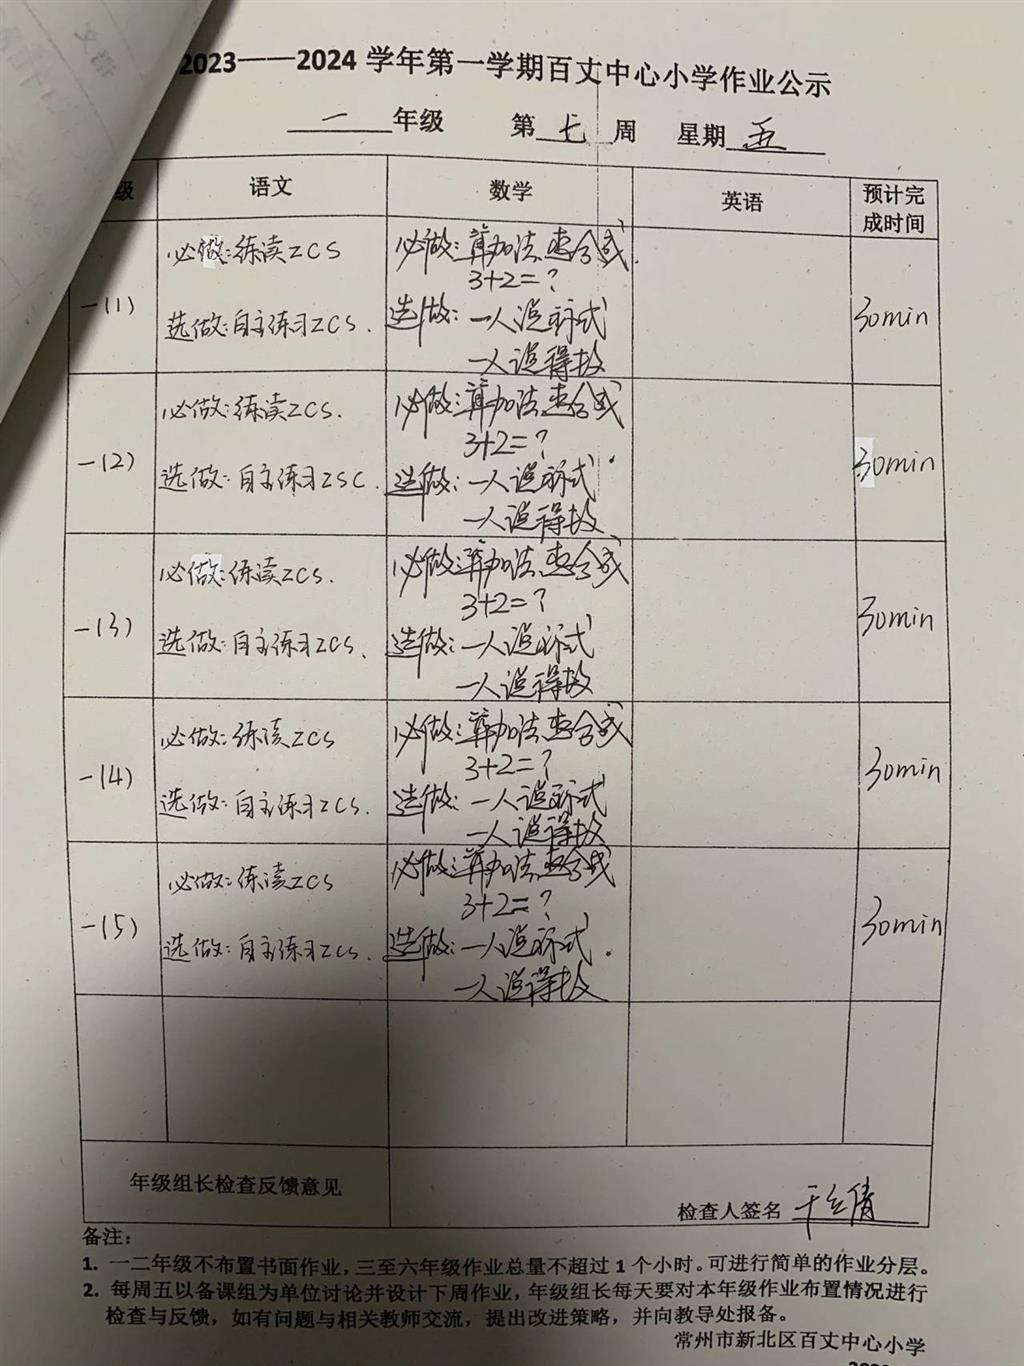 2023——2024 学年第一学期百丈中心小学作业公示
一 年级 第 七 周 星期 五
级 语文 数学 英语 预计完成时间
一(1)
必做:练读ZCS
选做:自主练习ZCS.
必做:算加法,想合成.
3+2=?
选做:一人说算式
一人说得数
30min
一(2)
必做:练读ZCS.
选做:自主练习ZSC.
必做:算加法,想合成
3+2=?
选做:一人说算式
一人说得数
30min
一(3)
必做:练读ZCS.
选做:自主练习ZCS.
必做:算加法,想合成
3+2=?
选做:一人说算式
一人说得数
30min
一(4)
必做:练读ZCS
选做:自主练习ZCS.
必做:算加法,想合成
3+2=?
选做:一人说算式
一人说得数
30min
一(5)
必做:练读ZCS
选做:自主练习ZCS.
必做:算加法,想合成
3+2=?
选做:一人说算式.
一人说得数
30min
年级组长检查反馈意见
检查人签名
备注:
1. 一二年级不布置书面作业,三至六年级作业总量不超过 1 个小时。可进行简单的作业分层。
2. 每周五以备课组为单位讨论并设计下周作业,年级组长每天要对本年级作业布置情况进行
检查与反馈,如有问题与相关教师交流,提出改进策略,并向教导处报备。
常州市新北区百丈中心小学